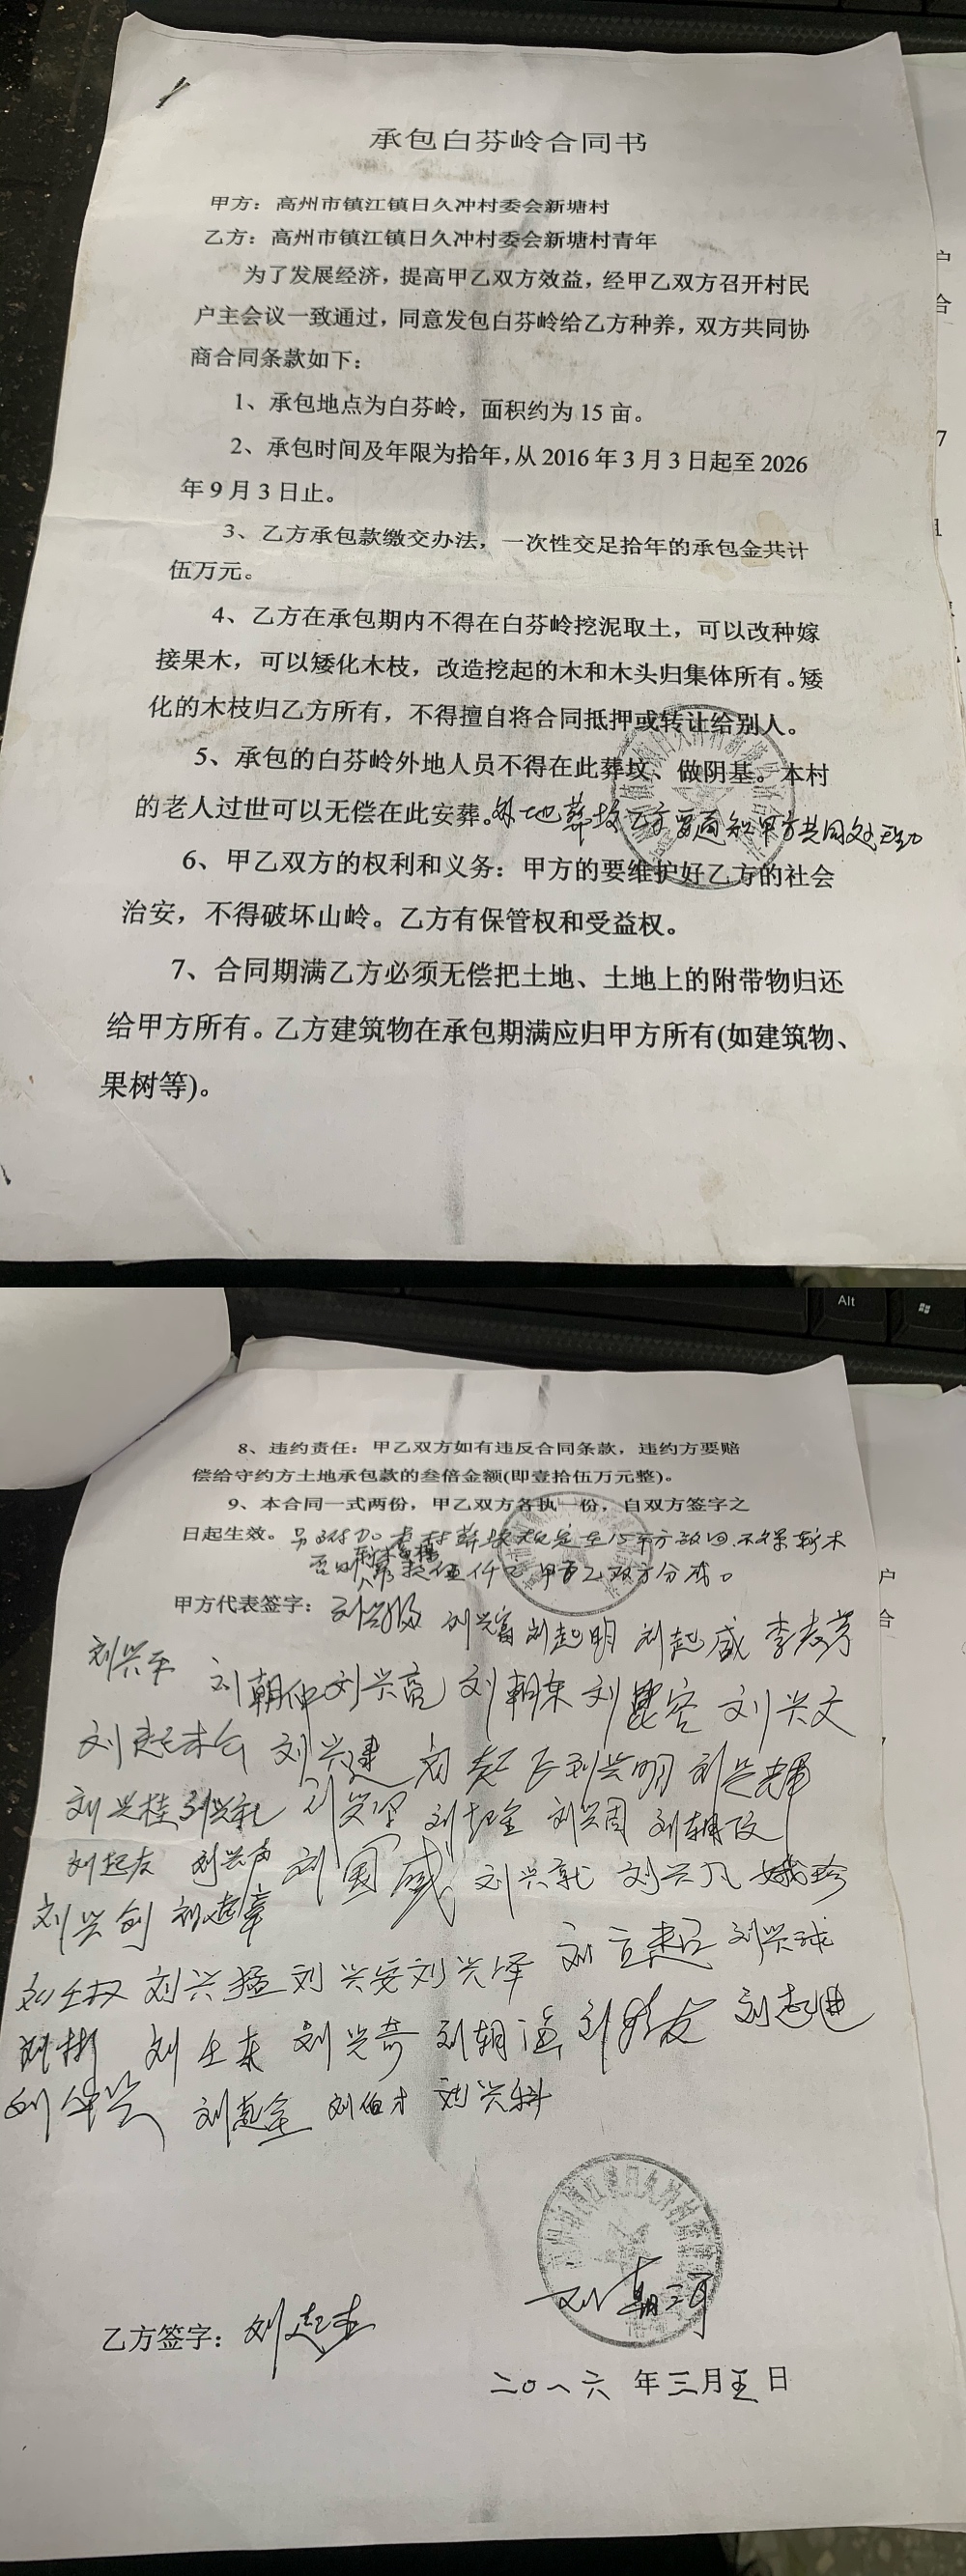 承包白芬岭合同书
甲方：高州市镇江镇日久冲村委会新塘村
乙方：高州市镇江镇日久冲村委会新塘村青年
为了发展经济，提高甲乙双方效益，经甲乙双方召开村民
户主会议一致通过，同意发包白芬岭给乙方种养，双方共同协
商合同条款如下：
1、承包地点为白芬岭，面积约为15亩。
2、承包时间及年限为拾年，从2016年3月3日起至2026
年9月3日止。
3、乙方承包款缴交办法，一次性交足拾年的承包金共计
伍万元。
4、乙方在承包期内不得在白芬岭挖泥取土，可以改种嫁
接果木，可以矮化木枝，改造挖起的木和木头归集体所有。矮
化的木枝归乙方所有，不得擅自将合同抵押或转让给别人。
5、承包的白芬岭外地人员不得在此葬坟、做阴基。本村
的老人过世可以无偿在此安葬。外地葬坟乙方要通知甲方共同处理
6、甲乙双方的权利和义务：甲方的要维护好乙方的社会
治安，不得破坏山岭。乙方有保管权和受益权。
7、合同期满乙方必须无偿把土地、土地上的附带物归还
给甲方所有。乙方建筑物在承包期满应归甲方所有(如建筑物、
果树等)。
户
合
7
1
Alt
8、违约责任：甲乙双方如有违反合同条款，违约方要赔
偿给守约方土地承包款的叁倍金额(即壹拾伍万元整)。
9、本合同一式两份，甲乙双方各执一份，自双方签字之
日起生效。另附加 15平方 不得斩木
否则 伍仟元 甲乙双方分成。
甲方代表签字： 刘兴富 刘起明 刘起威
刘兴平 刘朝仲 刘兴亮 刘朝东 刘兴文
刘兴建 刘兴明 刘兴辉
刘兴桂 刘兴周
刘起友 刘兴声 刘国威 刘兴凡
刘兴创
刘兴猛 刘兴安 刘兴泽 刘兴球
刘彬 刘兴奇
刘伯才 刘兴科
户
合
刘朝河
乙方签字：
二〇一六年三月五日